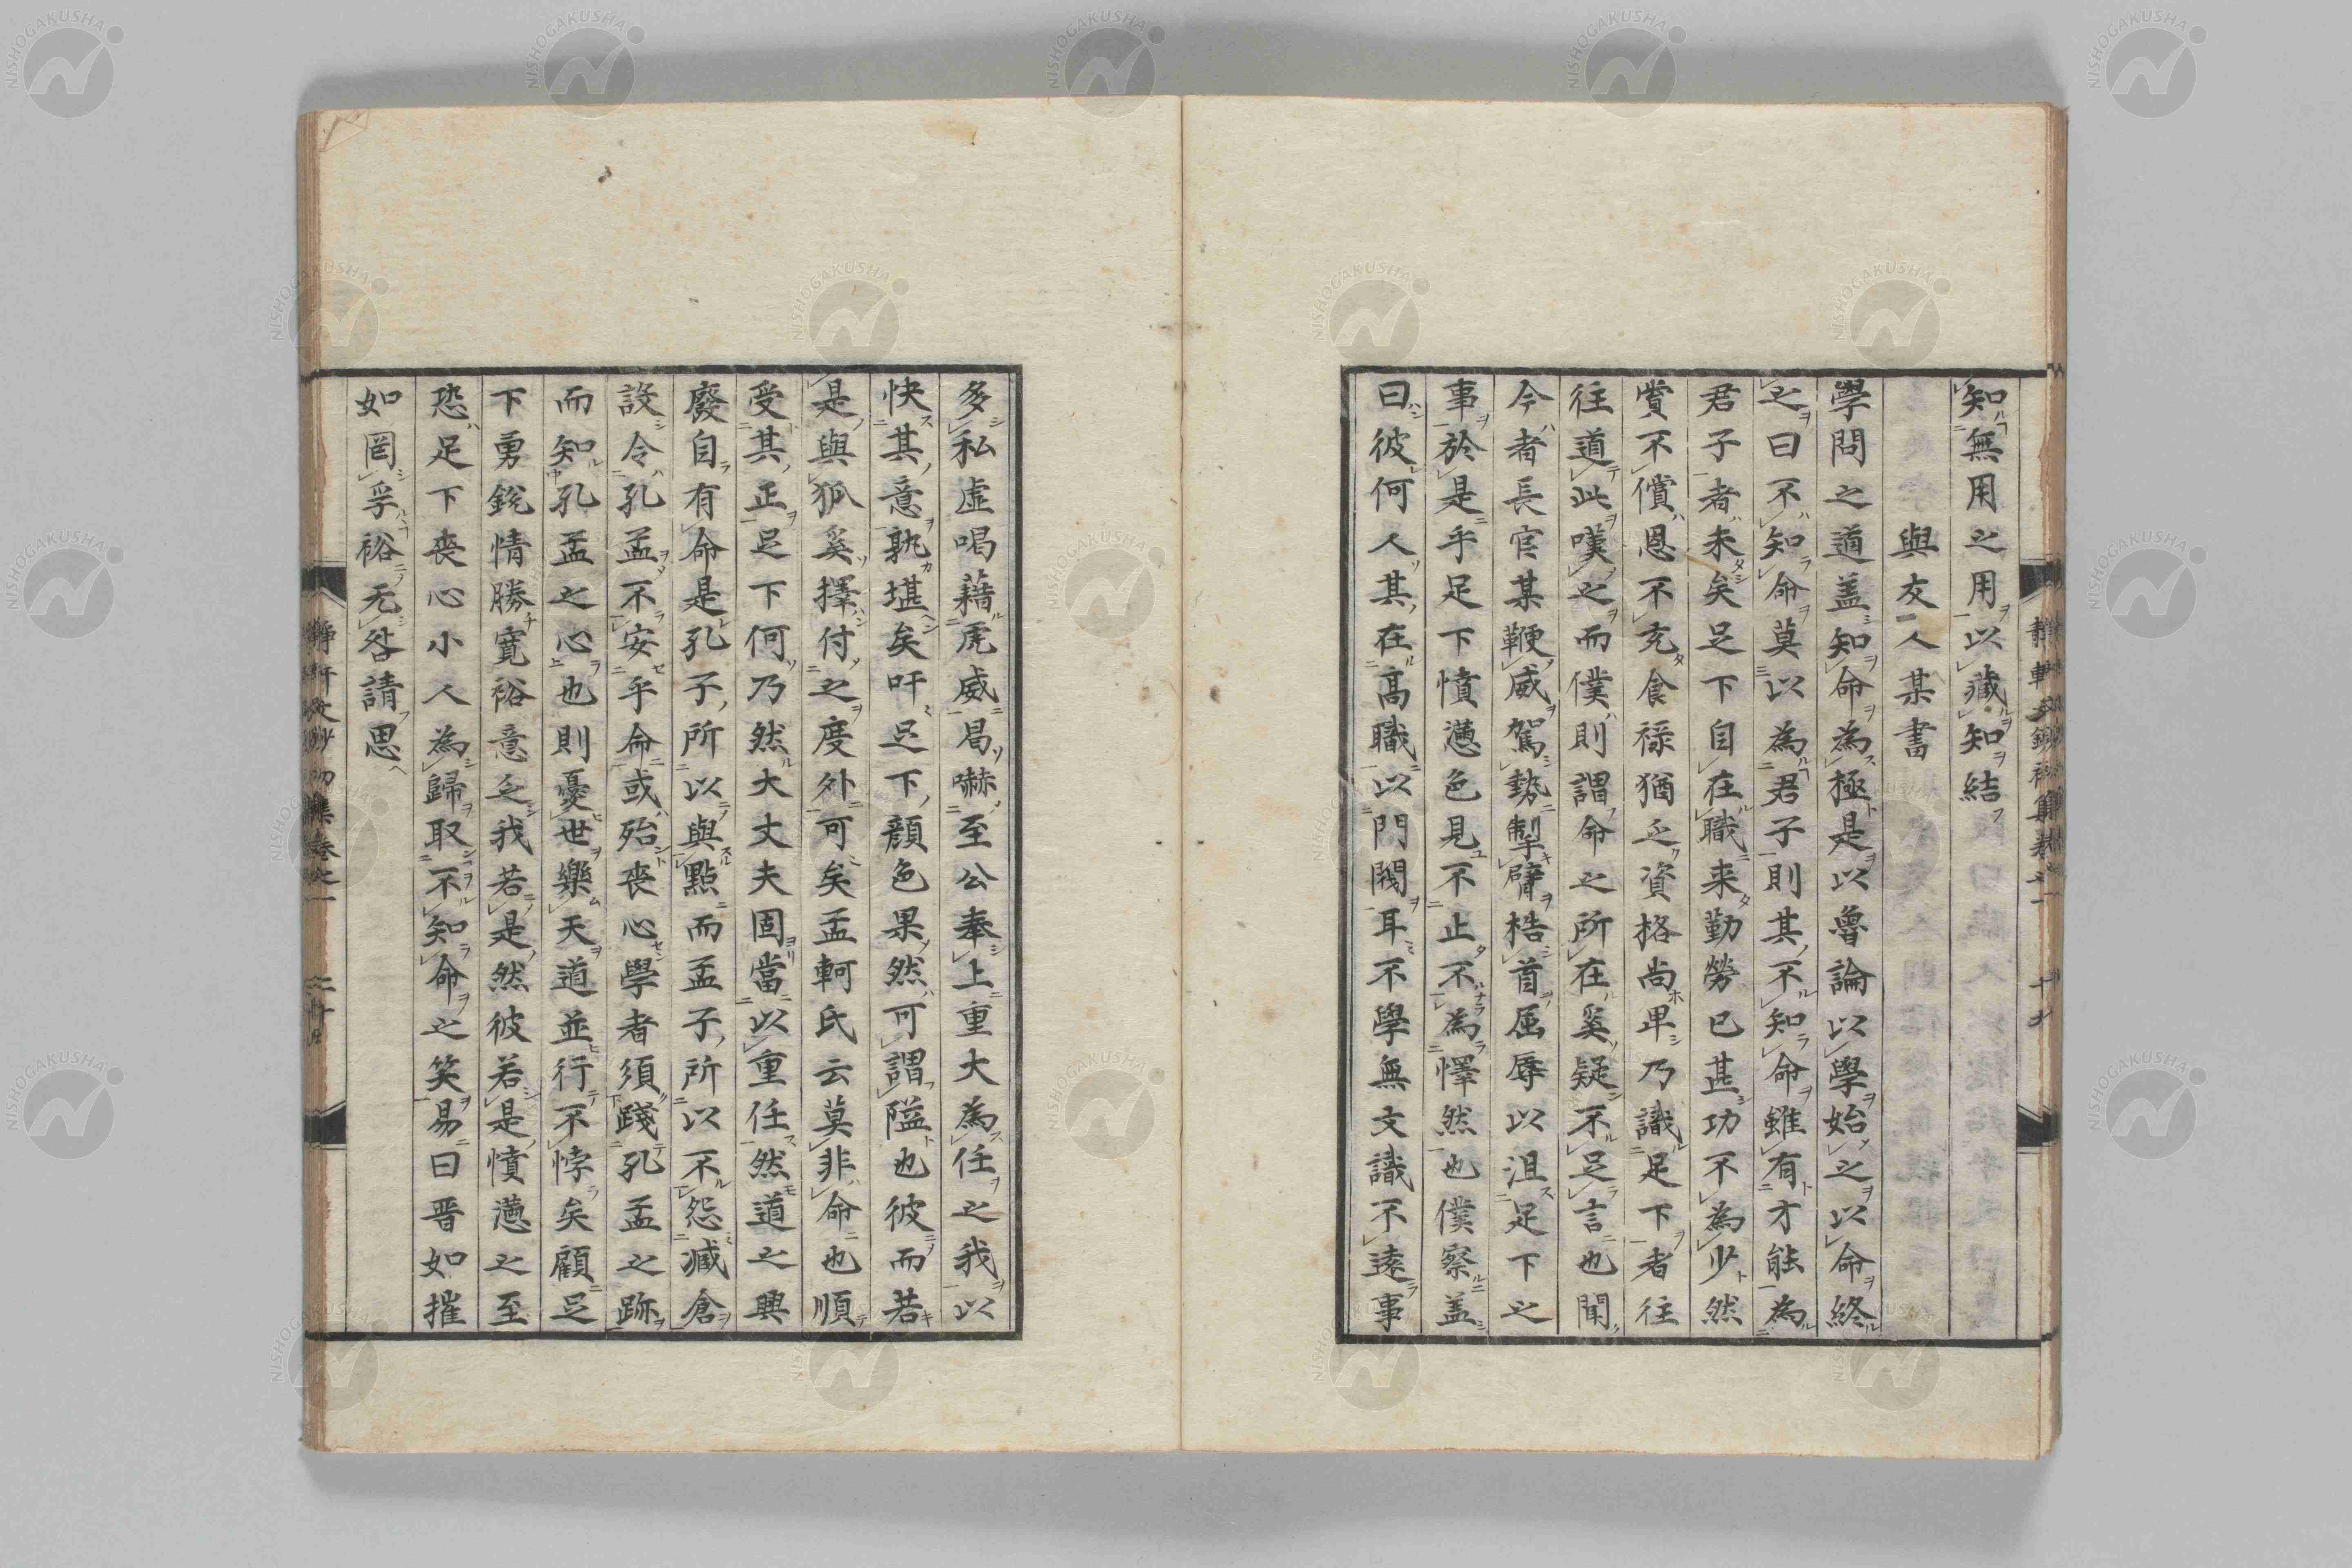 知無用之用以藏知結
與友人某書
學問之道盖知命為極是以魯論以學始之以命終
之曰不知命莫以為君子則其不知命雖有才能為
君子者未矣足下自在職来勤勞已甚功不為少然
賞不償恩不充食祿猶乏資格尚卑乃識足下者往
往道此嘆之而僕則謂命之所在奚疑不足言也聞
今者長官某鞭威駕勢掣臂梏首屈辱以沮足下之
事於是乎足下憤懣色見不止不為懌然也僕察盖
曰彼何人其在高職以門閥耳不學無文識不逺事
多私虚喝藉虎威曷嚇至公奉上重大為任之我以
快其意孰堪矣吁足下顔色果然可謂隘也彼而若
是與狐奚擇付之度外可矣孟軻氏云莫非命也順
受其正足下何乃然大丈夫固當以重任然道之興
廢自有命是孔子所以與點而孟子所以不怨臧倉
設令孔孟不安乎命或殆喪心學者須踐孔孟之跡
而知孔孟之心也則憂世樂天道並行不悖矣顧足
下勇銳情勝寬裕意乏我若是然彼若是憤懣之至
恐足下喪心小人為歸取不知命之笑易曰晋如摧
如罔孚裕无咎請思
NISHOGAKUSHA